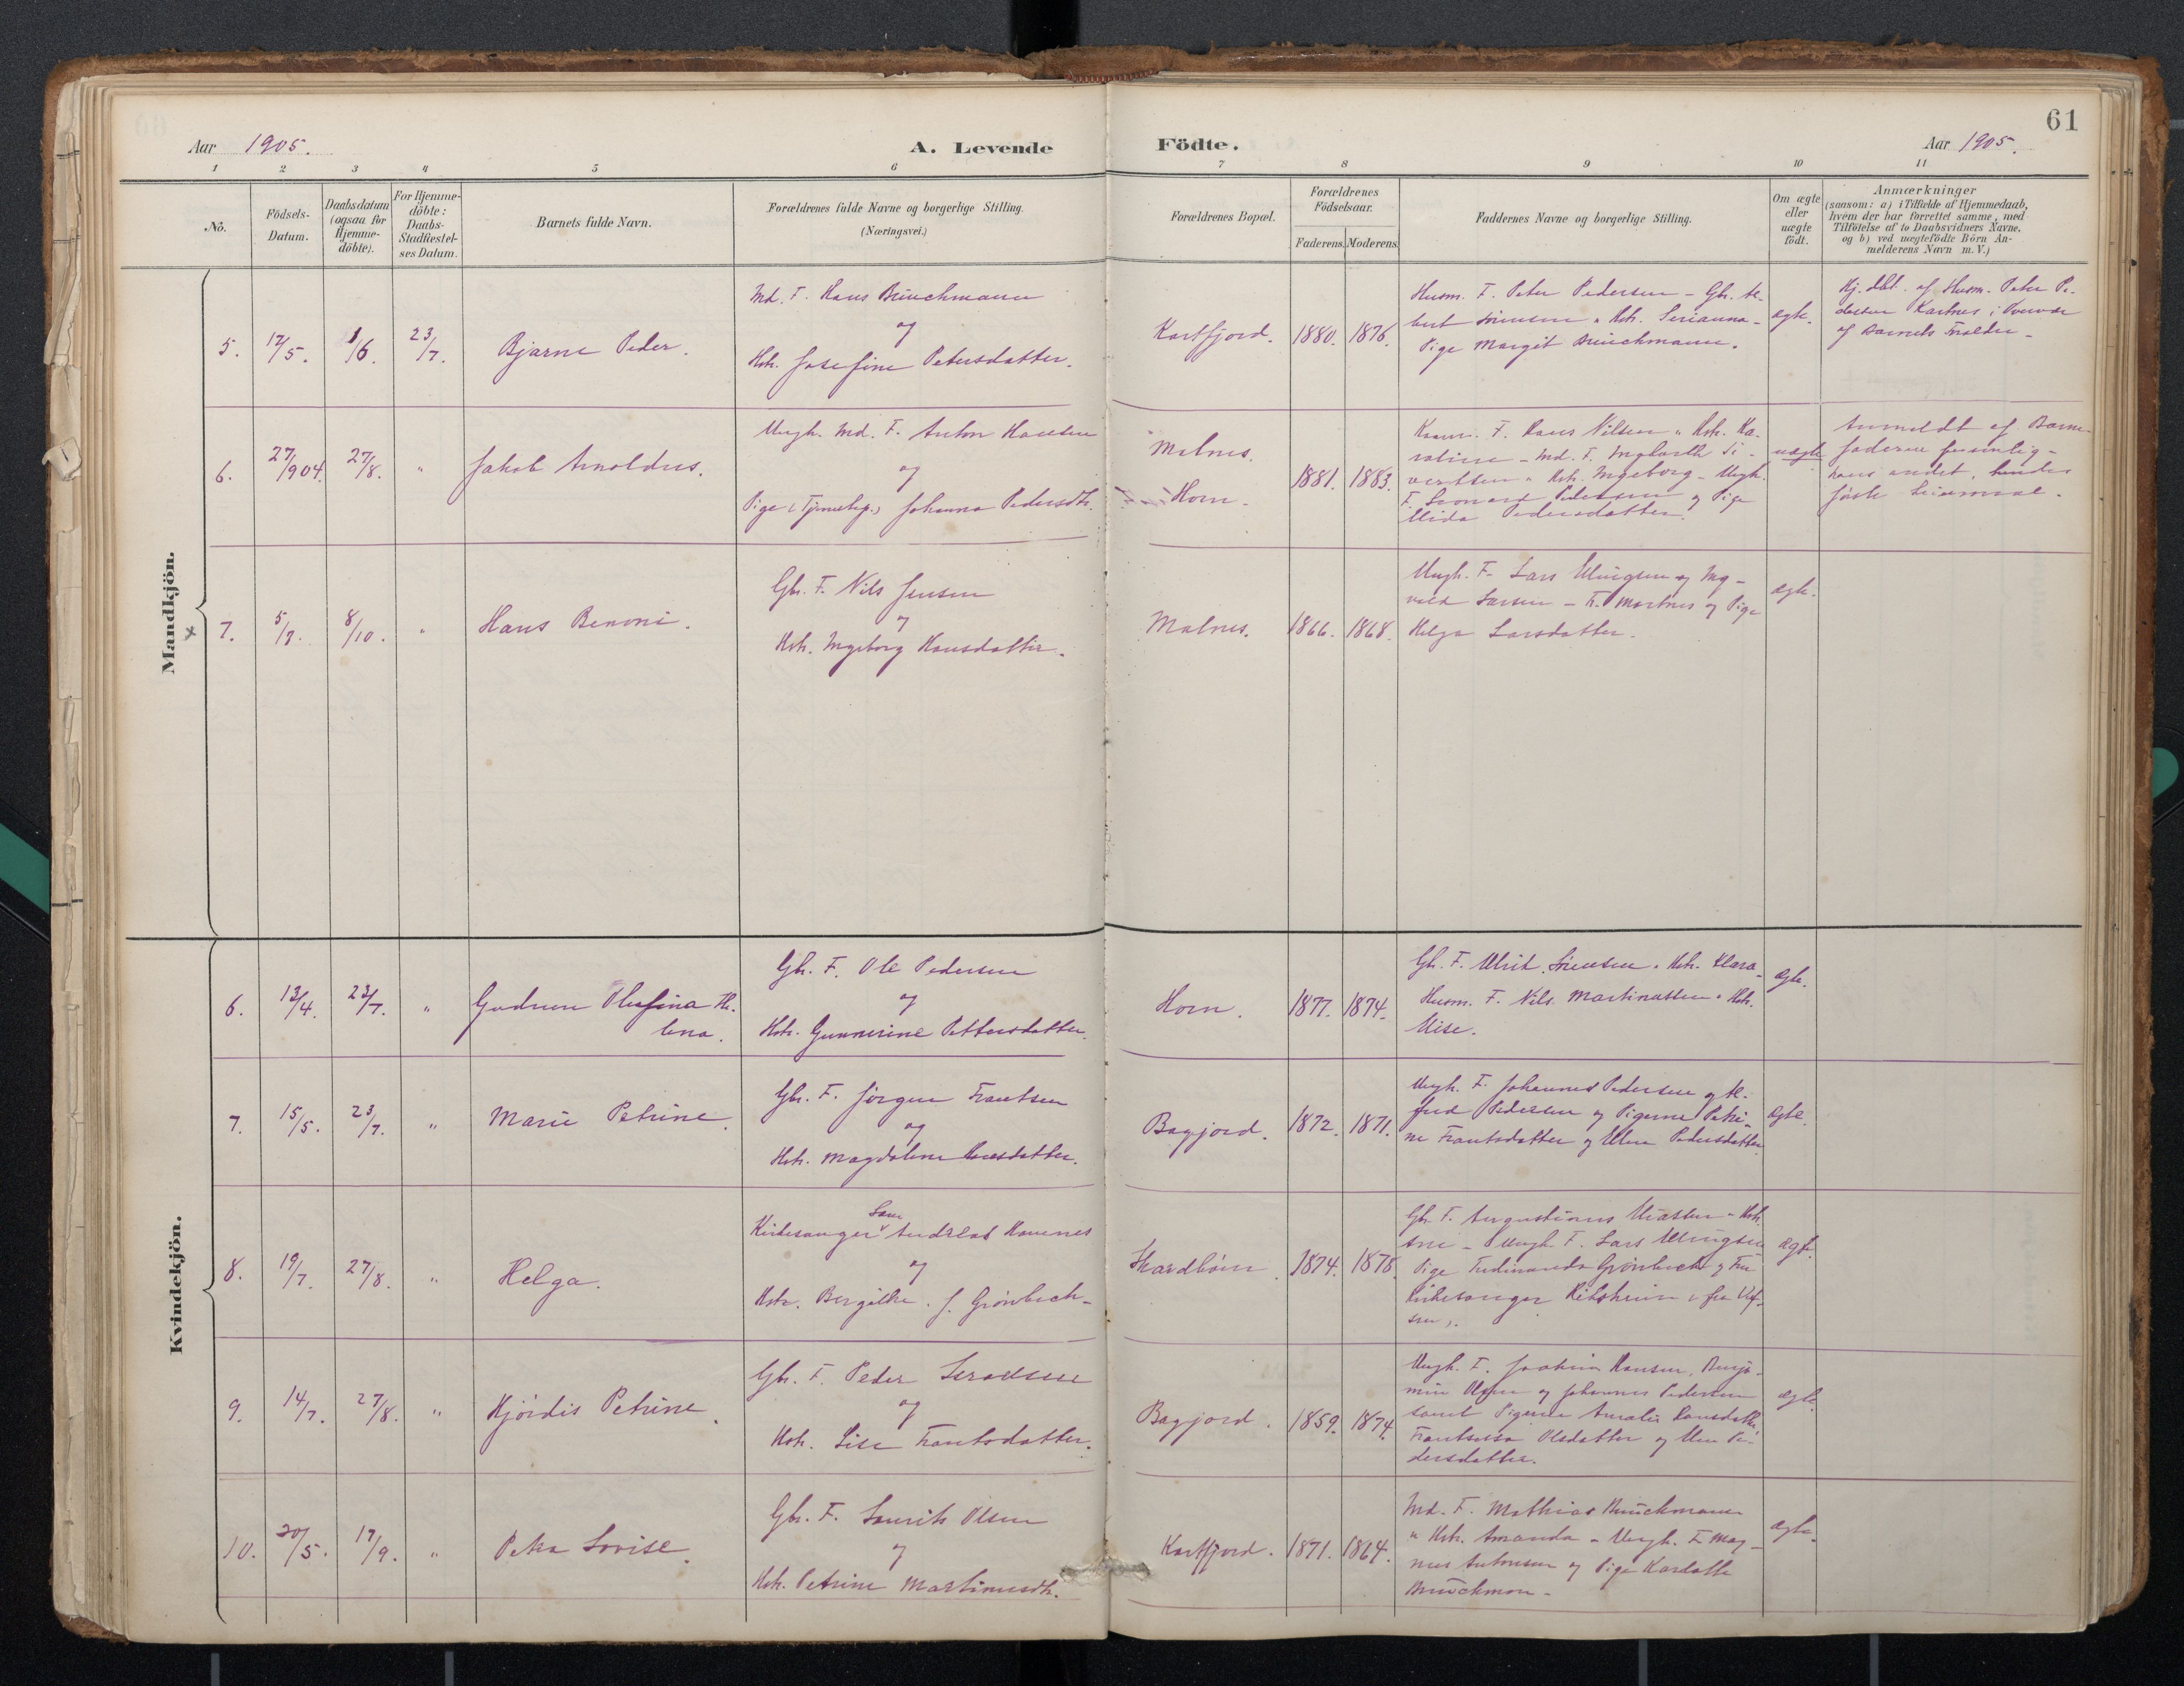 61
Aar 1905.
A. Levende Födte.
Aar 1905.
1 2 3 4 5 6 7 8 9 10 11
No.
Födsels-
Datum.
Daabsdatum
(ogsaa for
Hjemme-
döbte).
For Hjemme-
döbte:
Daabs-
Stadfæstel-
ses Datum.
Barnets fulde Navn.
Forældrenes fulde Navne og borgerlige Stilling.
(Næringsvei.)
Forældrenes Bopæl.
Forældrenes
Födselsaar.
Faderens. Moderens.
Faddernes Navne og borgerlige Stilling.
Om ægte
eller
uægte
födt.
Anmærkninger
(saasom: a) i Tilfælde af Hjemmedaab,
hvem der har forrettet samme, med
Tilföielse af to Daabsvidners Navne.
og b) ved uægtefödte Börn An-
melderens Navn m. V.)
Mandkjön.
5. 17/5. 1/6. 23/7. Bjarne Peder.
Md. F. Hans Bünchmann
og
Hstr. Josefine Petersdatter.
Kartfjord. 1880. 1876.
Husm. F. Peter Pedersen - Gbr. Al-
bert Sörensen " Hstr. Serianna -
Pige Margit Bünchmann.
ægte.
Hj. dbt. af Husm. Peter Pe-
dersen Kartnes i Overvær
af Barnets Forældre -
6. 27/904. 27/8. " Jakob Arnoldus.
Ungk. Md. F. Anton Hansen
og
Pige (Tjenestep.) Johanna Pedersdtr.
Malnes.
Horn.
1881. 1883.
F. Hans Nilsen " Hstr. Ka-
roline - Md. F. Ingbarth Si-
vertsen " Hstr. Ingeborg - Ungk.
F. Leonard Pedersen og Pige
Pedersdatter.
uægte
Anmeldt af Barne-
faderen personlig -
hans andet, hendes
förste Leiermaal.
7. 5/8. 8/10. " Hans Benoni.
Gbr. F. Nils Jensen
og
Hstr. Ingeborg Hansdatter.
Malnes. 1866. 1868.
Ungk. F. Lars Ellingsen og Ing-
vald Larsen - F. Martnes og Pige
Helga Larsdatter.
ægte.
Kvindekjön.
6. 13/4. 23/7. " Gudrun Olufina He-
lena.
Gbr. F. Ole Pedersen
og
Hstr. Gunnerine Pettersdatter.
Horn. 1877. 1874.
Gbr. F. Ulrik Sörensen " Hstr. Klara -
Husm. F. Nils Martinussen " Hstr.
Elise.
ægte.
7. 15/5. 23/7. " Marie Petrine.
Gbr. F. Jörgen Frantsen
og
Hstr. Magdalene Hansdatter.
Bagjord. 1872. 1871.
Ungk. F. Johannes Pedersen og Al-
fred Pedersen og Pigerne Petri-
ne Frantsdatter og Elen Pedersdatter.
ægte.
8. 19/7. 27/8. " Helga.
Kirkesanger Andreas Hovenes
og
Hstr. Bergithe f. Grönbech -
Skardböum. 1874. 1878.
Gbr. F. Augustinus Eliassen " Hstr.
Ane - Ungk. F. Lars Ellingsen
Pige Ferdinanda Grönbech og Fru
Kirkesanger
ægte.
9. 14/7. 27/8. " Hjördis Petrine.
Gbr. F. Peder
og
Hstr. Lise Frantsdatter.
Bagjord. 1859. 1874.
Ungk. F. Joakim Hansen, Benja-
min Olsen og Johannes Pedersen
samt Pigerne Amalie Hansdatter,
Olsdatter og Elen Pe-
dersdatter.
ægte.
10. 20/5. 17/9. " Petra Lovise.
Gbr. F. Laurits Olsen
og
Hstr. Petrine Martinusdtr.
Kartfjord. 1871. 1864.
Md. F. Mathias Bünchmann
" Hstr. Amanda - Ungk. F. Mag-
nus Antonsen og Pige
Bünchmann -
ægte.